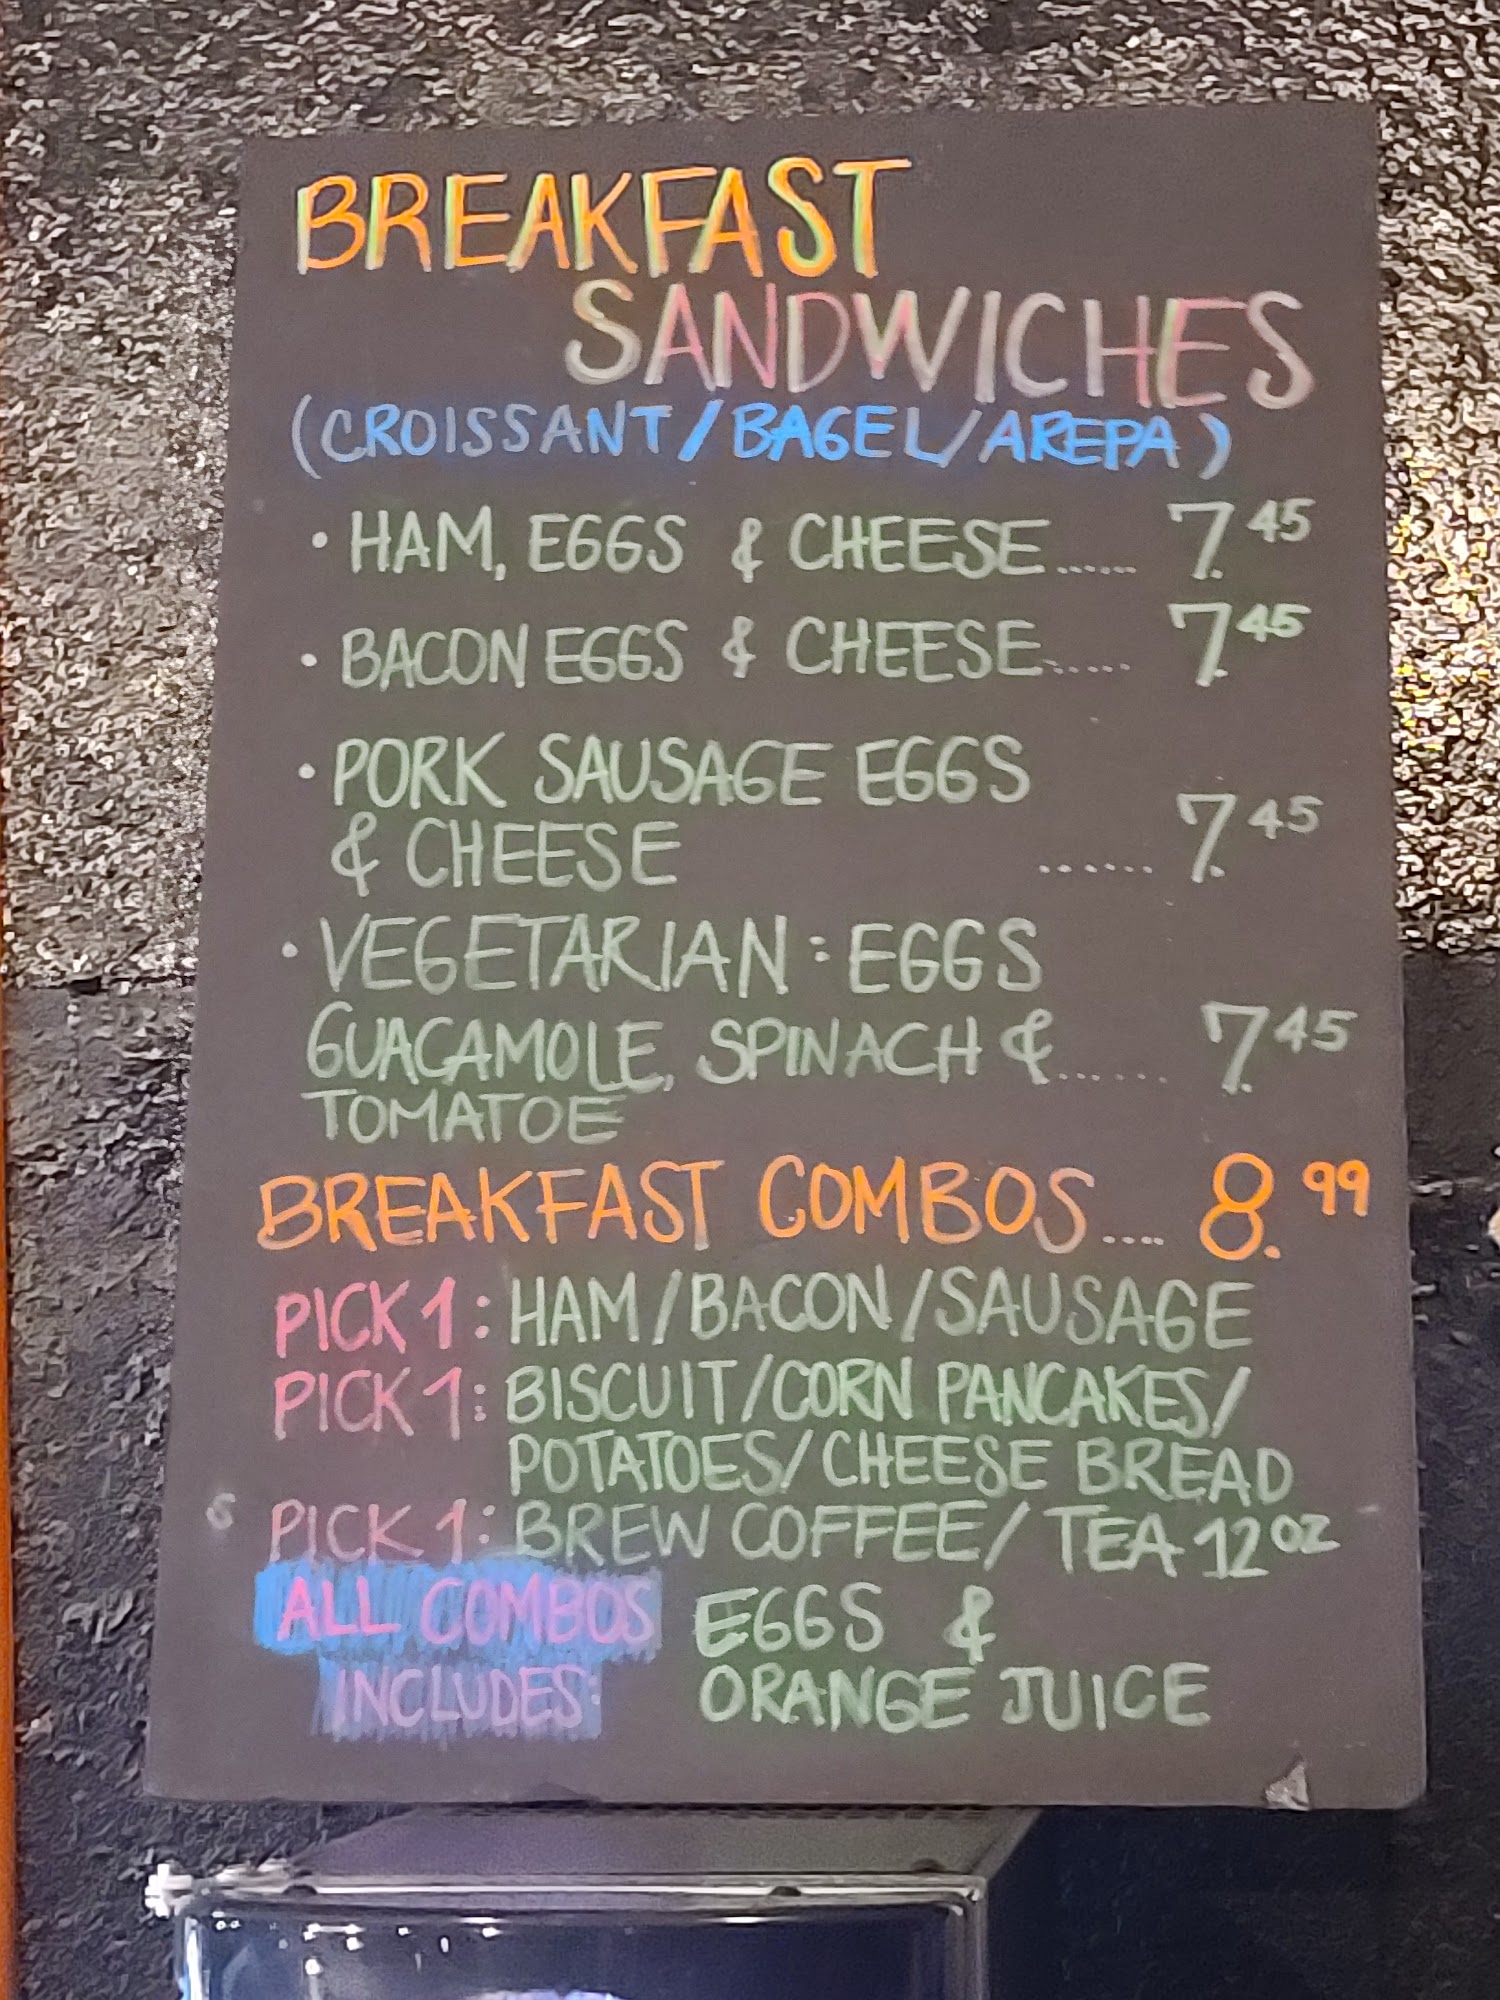 BREAKFAST
SANDWICHES
(CROISSANT/BAGEL/AREPA)
• HAM, EGGS & CHEESE...... 7.45
• BACON EGGS & CHEESE...... 7.45
• PORK SAUSAGE EGGS
& CHEESE ...... 7.45
• VEGETARIAN: EGGS
GUACAMOLE, SPINACH &...... 7.45
TOMATOE
BREAKFAST COMBOS.... 8.99
PICK 1: HAM/BACON/SAUSAGE
PICK 1: BISCUIT/CORN PANCAKES/
POTATOES/CHEESE BREAD
PICK 1: BREW COFFEE/TEA 12oz
ALL COMBOS EGGS &
INCLUDES: ORANGE JUICE